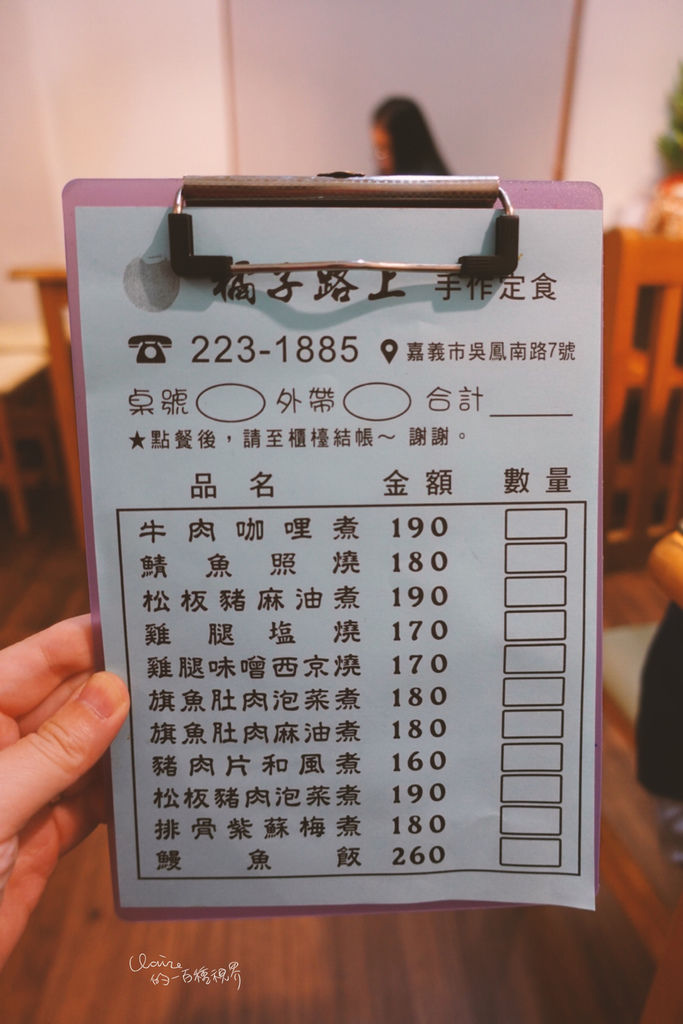 橘子路上 手作定食
223-1885 嘉義市吳鳳南路7號
桌號 外帶 合計
★點餐後，請至櫃檯結帳～ 謝謝。
品名 金額 數量
牛肉咖哩煮 190
鯖魚照燒 180
松板豬麻油煮 190
雞腿塩燒 170
雞腿味噌西京燒 170
旗魚肚肉泡菜煮 180
旗魚肚肉麻油煮 180
豬肉片和風煮 160
松板豬肉泡菜煮 190
排骨紫蘇梅煮 180
鰻魚飯 260
Claire
的一百種視界